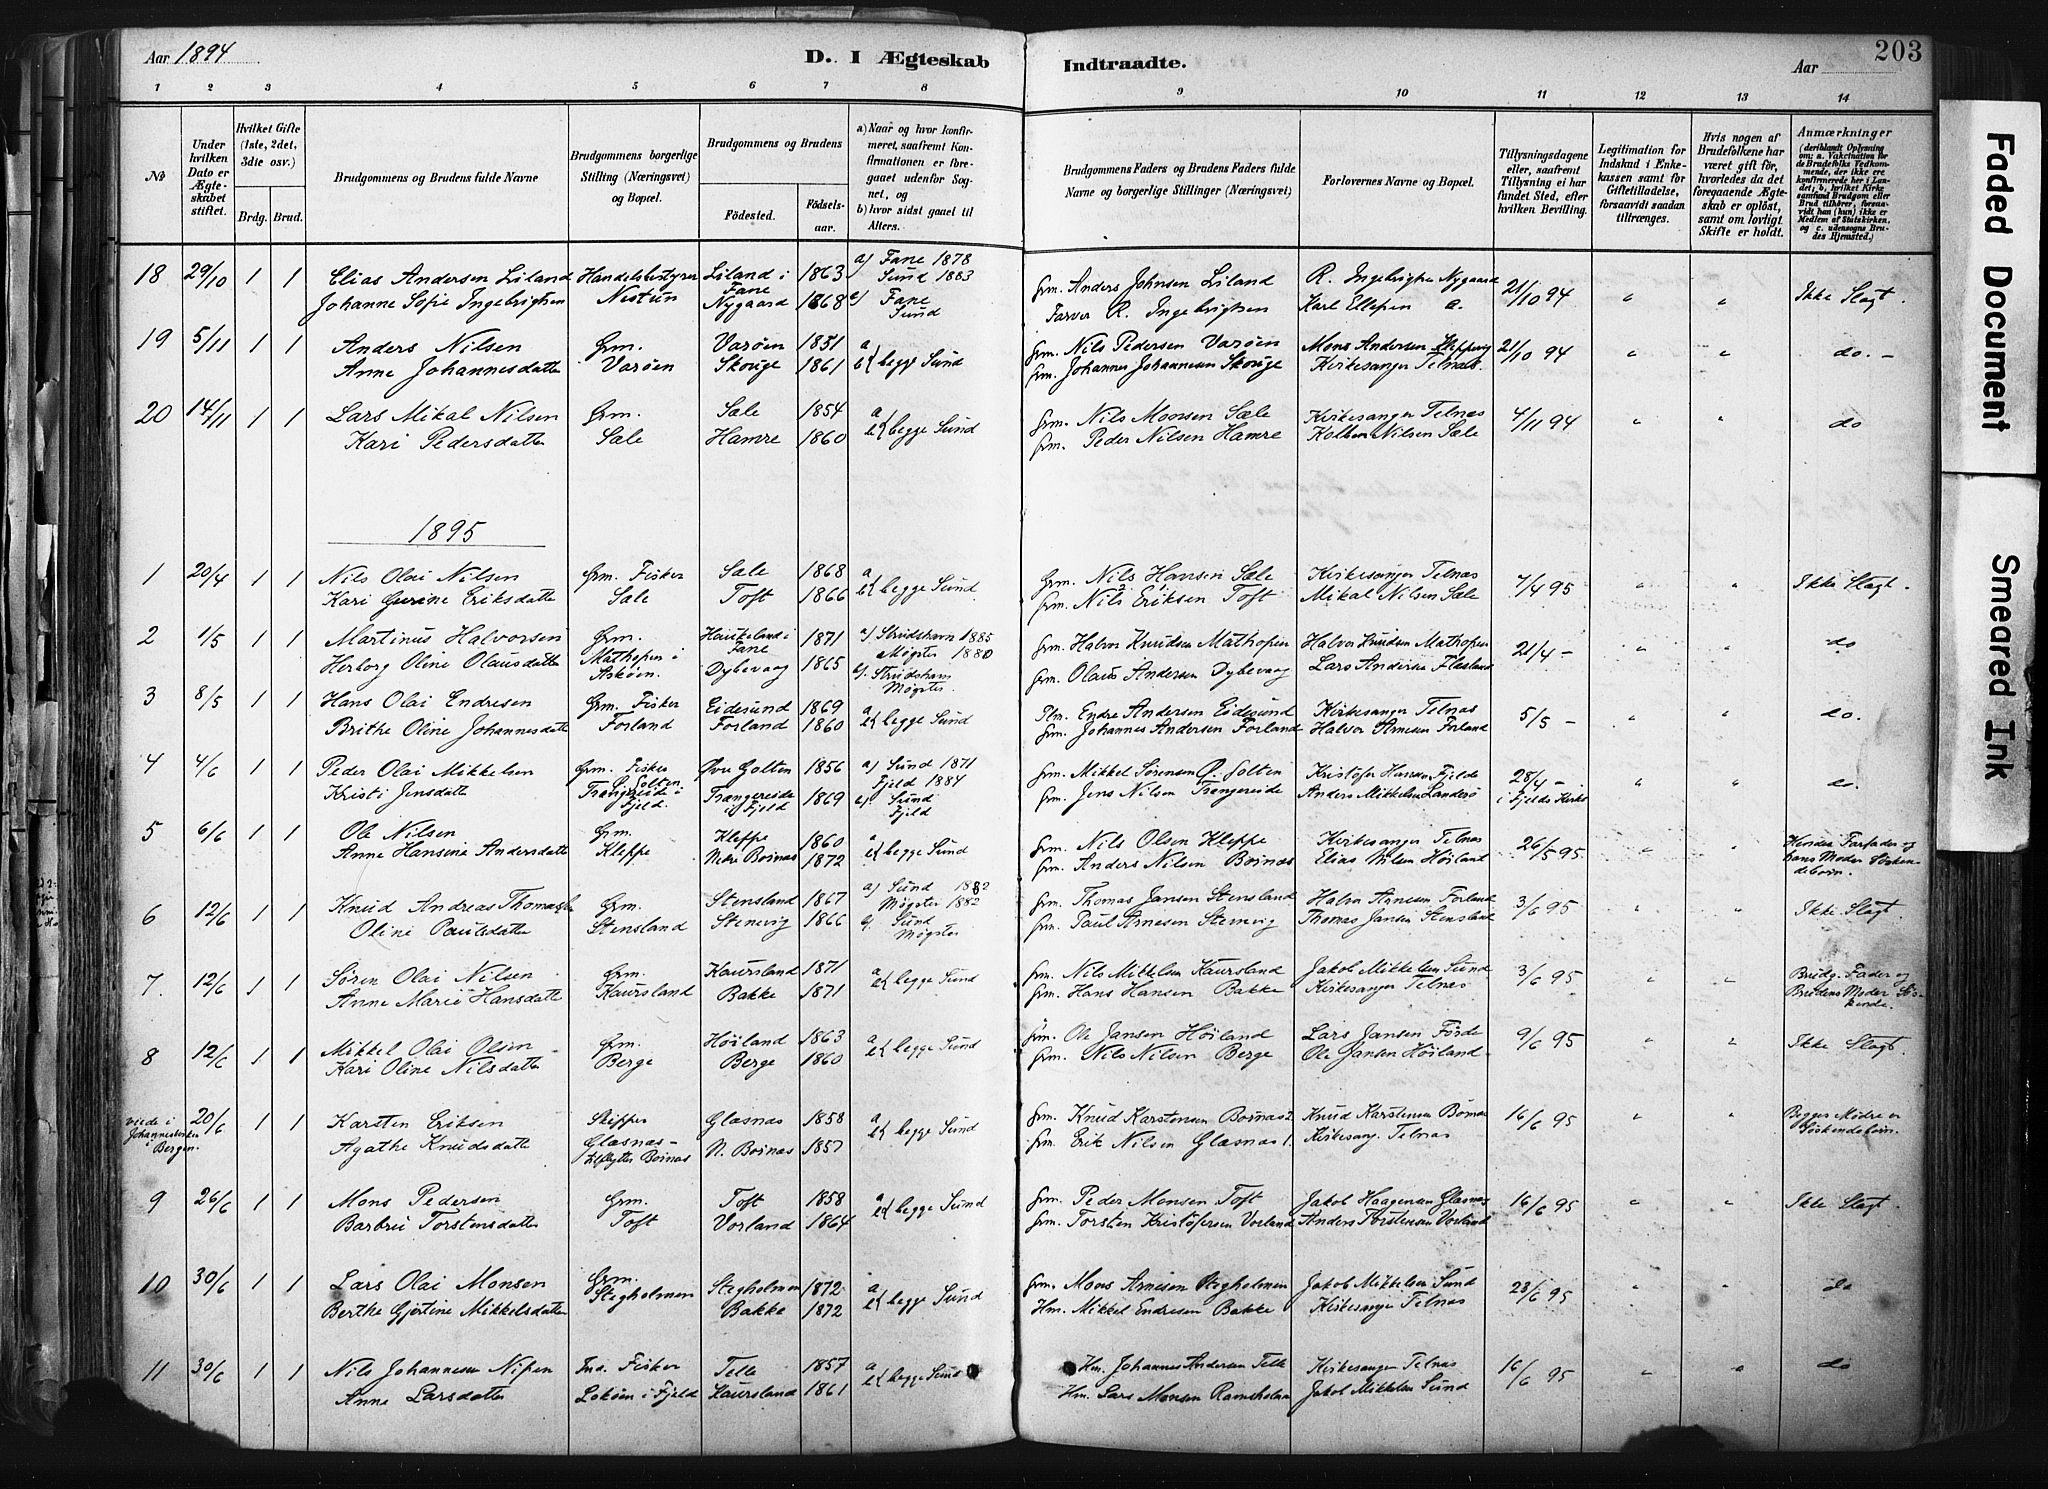 Aar 1894
D. I Ægteskab Indtraadte.
Aar
203
1 2 3 4 5 6 7 8 9 10 11 12 13 14
No
Under hvilken Dato er Ægteskabet stiftet.
Hvilket Gifte (1ste, 2det, 3die osv.)
Brdg. Brud.
Brudgommens og Brudens fulde Navne
Brudgommens borgerlige Stilling (Næringsvei) og Bopæl.
Brudgommens og Brudens
Fødested.
Fødselsaar.
a) Naar og hvor konfirmeret, saafremt Konfirmationen er foregaaet udenfor Sognet, og
b) hvor sidst gaaet til Alters.
Brudgommens Faders og Brudens Faders fulde Navne og borgerlige Stillinger (Næringsvei)
Forlovernes Navne og Bopæl.
Tillysningsdagene eller, saafremt Tillysning ei har fundet Sted, efter hvilken Bevilling.
Legitimation for Indskud i Enkekassen samt for Giftetilladelse, forsaavidt saadan tiltrænges.
Hvis nogen af Brudefolkene har været gift før, hvorledes da det foregaaende Ægteskab er opløst, samt om lovligt Skifte er holdt.
Anmærkninger (deriblandt Oplysning om: a. Vakcination for de Brudefolks Vedkommende, der ikke ere konfirmerede her i Landet; b. hvilket Kirkesamfund Brudgom eller Brud tilhører, forsaavidt han (hun) ikke er Medlem af Statskirken, og c. udensogns Brudes Hjemsted.)
18 29/10 1 1 Elias Andersen Liland Handelsbestyrer Liland i Fane 1863 a) Fane 1878 Sund 1883 Grm. Anders Johnsen Liland R. Ingebrigtsen Nygaard 21/10 94 " " Ikke Slægt.
Johanne Sofie Ingebrigtsen Nestun Nygaard 1868 b) Fane Sund Farver R. Ingebrigtsen Karl Ellefsen
19 5/11 1 1 Anders Nilsen Grm. Varøen 1851 a b begge Sund Grm. Nils Pedersen Varøen Mons Andersen Kleppevig 21/10 94 " " do. -
Anne Johannesdatter Varøen Skouge 1861 Grm. Johannes Johannesen Skouge Kirkesanger Telnæs.
20 14/11 1 1 Lars Mikal Nilsen Grm. Sæle 1854 a b begge Sund Grm. Nils Monsen Sæle Kirkesanger Telnæs 4/11 94 " " do
Kari Pedersdatter Sæle Hamre 1860 Grm. Peder Nilsen Hamre Kolben Nilsen Sæle
1895
1 20/4 1 1 Nils Olai Nilsen Grm. Fisker Sæle 1868 a b begge Sund Grm. Nils Hansen Sæle Kirkesanger Telnæs 7/4 95 " " Ikke Slægt.
Kari Gurine Eriksdatter Sæle Toft 1866 Grm. Nils Eriksen Toft Mikal Nilsen Sæle
2 1/5 1 1 Martinus Halvorsen Grm. Haukeland i Fane 1871 a) Strudshavn 1885 Møgster 1880 Grm. Halvor Knudsen Mathopen Halvor Knudsen Mathopen 21/4 - " " do
Herborg Oline Olausdatter Mathopen i Askøen. Dybevaag 1865 b). Strudshavn Møgster. Grm. Olaus Andersen Dybevaag Lars Andersen Flesland
3 8/5 1 1 Hans Olai Endresen Grm. Fisker Eidesund 1869 a b begge Sund Plm. Endre Andersen Eidesund Kirkesanger Telnæs 5/5 - " " do.
Brithe Oline Johannesdatter Forland Forland 1860 Grm. Johannes Andersen Forland Halvor Arnesen Forland
4 4/6 1 1 Peder Olai Mikkelsen Grm. Fisker Ø. Golten Øvre Golten 1856 a) Sund 1871 Fjeld 1884 Grm. Mikkel Sørensen Ø. Golten Kristofer Hansen Fjelde 28/4 - " " do.
Kristi Jensdatter Trængereide i Fjeld. Trængereide i Fjeld 1869 b) Sund Fjeld Grm. Jens Nilsen Trængereide Anders Mikkelsen Landerø i Fjelds Kirke
5 6/6 1 1 Ole Nilsen Grm. Kleppe 1860 a b begge Sund Grm. Nils Olsen Kleppe Kirkesanger Telnæs 26/5 95 " " Hendes Farfader og hans Moder Søskendebørn.
Anne Hansine Andersdatter Kleppe Nedre Bornæs 1872 Grm. Anders Nilsen Bornæs Elias Nilsen Høiland
6 12/6 1 1 Knud Andreas Thomassen Grm. Stensland 1867 a) Sund 1882 Møgster 1882 Grm. Thomas Jansen Stensland Halvor Arnesen Forland 3/6 95 " " Ikke Slægt.
Oline Paulsdatter Stensland Stenevig 1866 b). Sund Møgster Grm. Paul Arnesen Stenevig Thomas Jansen Stensland
7. 12/6 1 1 Søren Olai Nilsen Grm. Kaursland 1871 a b begge Sund Grm. Nils Mikkelsen Kaursland Jakob Mikkelsen Sund 3/6 95 " " Brudg. Fader og Brudens Moder Søskende
Anne Marie Hansdatter Kaursland Bakke 1871 Grm. Hans Hansen Bakke Kirkesanger Telnæs
8 12/6 1 1 Mikkel Olai Olsen Grm. Høiland 1863 a b begge Sund Grm. Ole Jansen Høiland Lars Jansen Førde 9/6 95 " " Ikke Slægt.
Kari Oline Nilsdatter Berge Berge 1860 Grm. Nils Nilsen Berge Ole Jansen Høiland
viede i Johanneskirken i Bergen. 20/6 1 1 Karsten Eriksen Skipper Glæsnæs 1858 a b begge Sund Grm. Knud Karstensen Bornæs 2 Knud Karstensen Bornæs 16/6 95 " " Begges Mødre er Søskendebørn.
Agathe Knudsdatter Glæsnæs- tilflytter Bornæs N. Bornæs 1857 Grm. Erik Nilsen Glæsnæs 1. Kirkesang. Telnæs
9 26/6 1 1 Mons Pedersen Grm. Toft 1858 a b begge Sund Grm. Peder Monsen Toft Jakob Haagensen Glæsnæs 16/6 95 " " Ikke Slægt.
Barbru Torstensdatter Toft Vorland 1864 Grm. Torsten Kristofersen Vorland Anders Torstensen Vorland
10 30/6 1 1 Lars Olai Monsen Grm. Stegholmen Stegholmen 1872 a b begge Sund Grm. Mons Arnesen Stegholmen Jakob Mikkelsen Sund 23/6 95 " " do
Berthe Gjertine Mikkelsdatter Bakke 1872 Hm. Mikkel Endresen Bakke Kirkesanger Telnæs
11 30/6 1 1 Nils Johannesen Nipen Ind. Fisker Telle 1857 a b begge Sund Hm. Johannes Andersen Telle Kirkesanger Telnæs 16/6 95 " " do
Anne Larsdatter Lokøen i Fjeld Kaursland 1861 Hm. Lars Monsen Ramsholmen Jakob Mikkelsen Sund
Faded Document
Smeared Ink